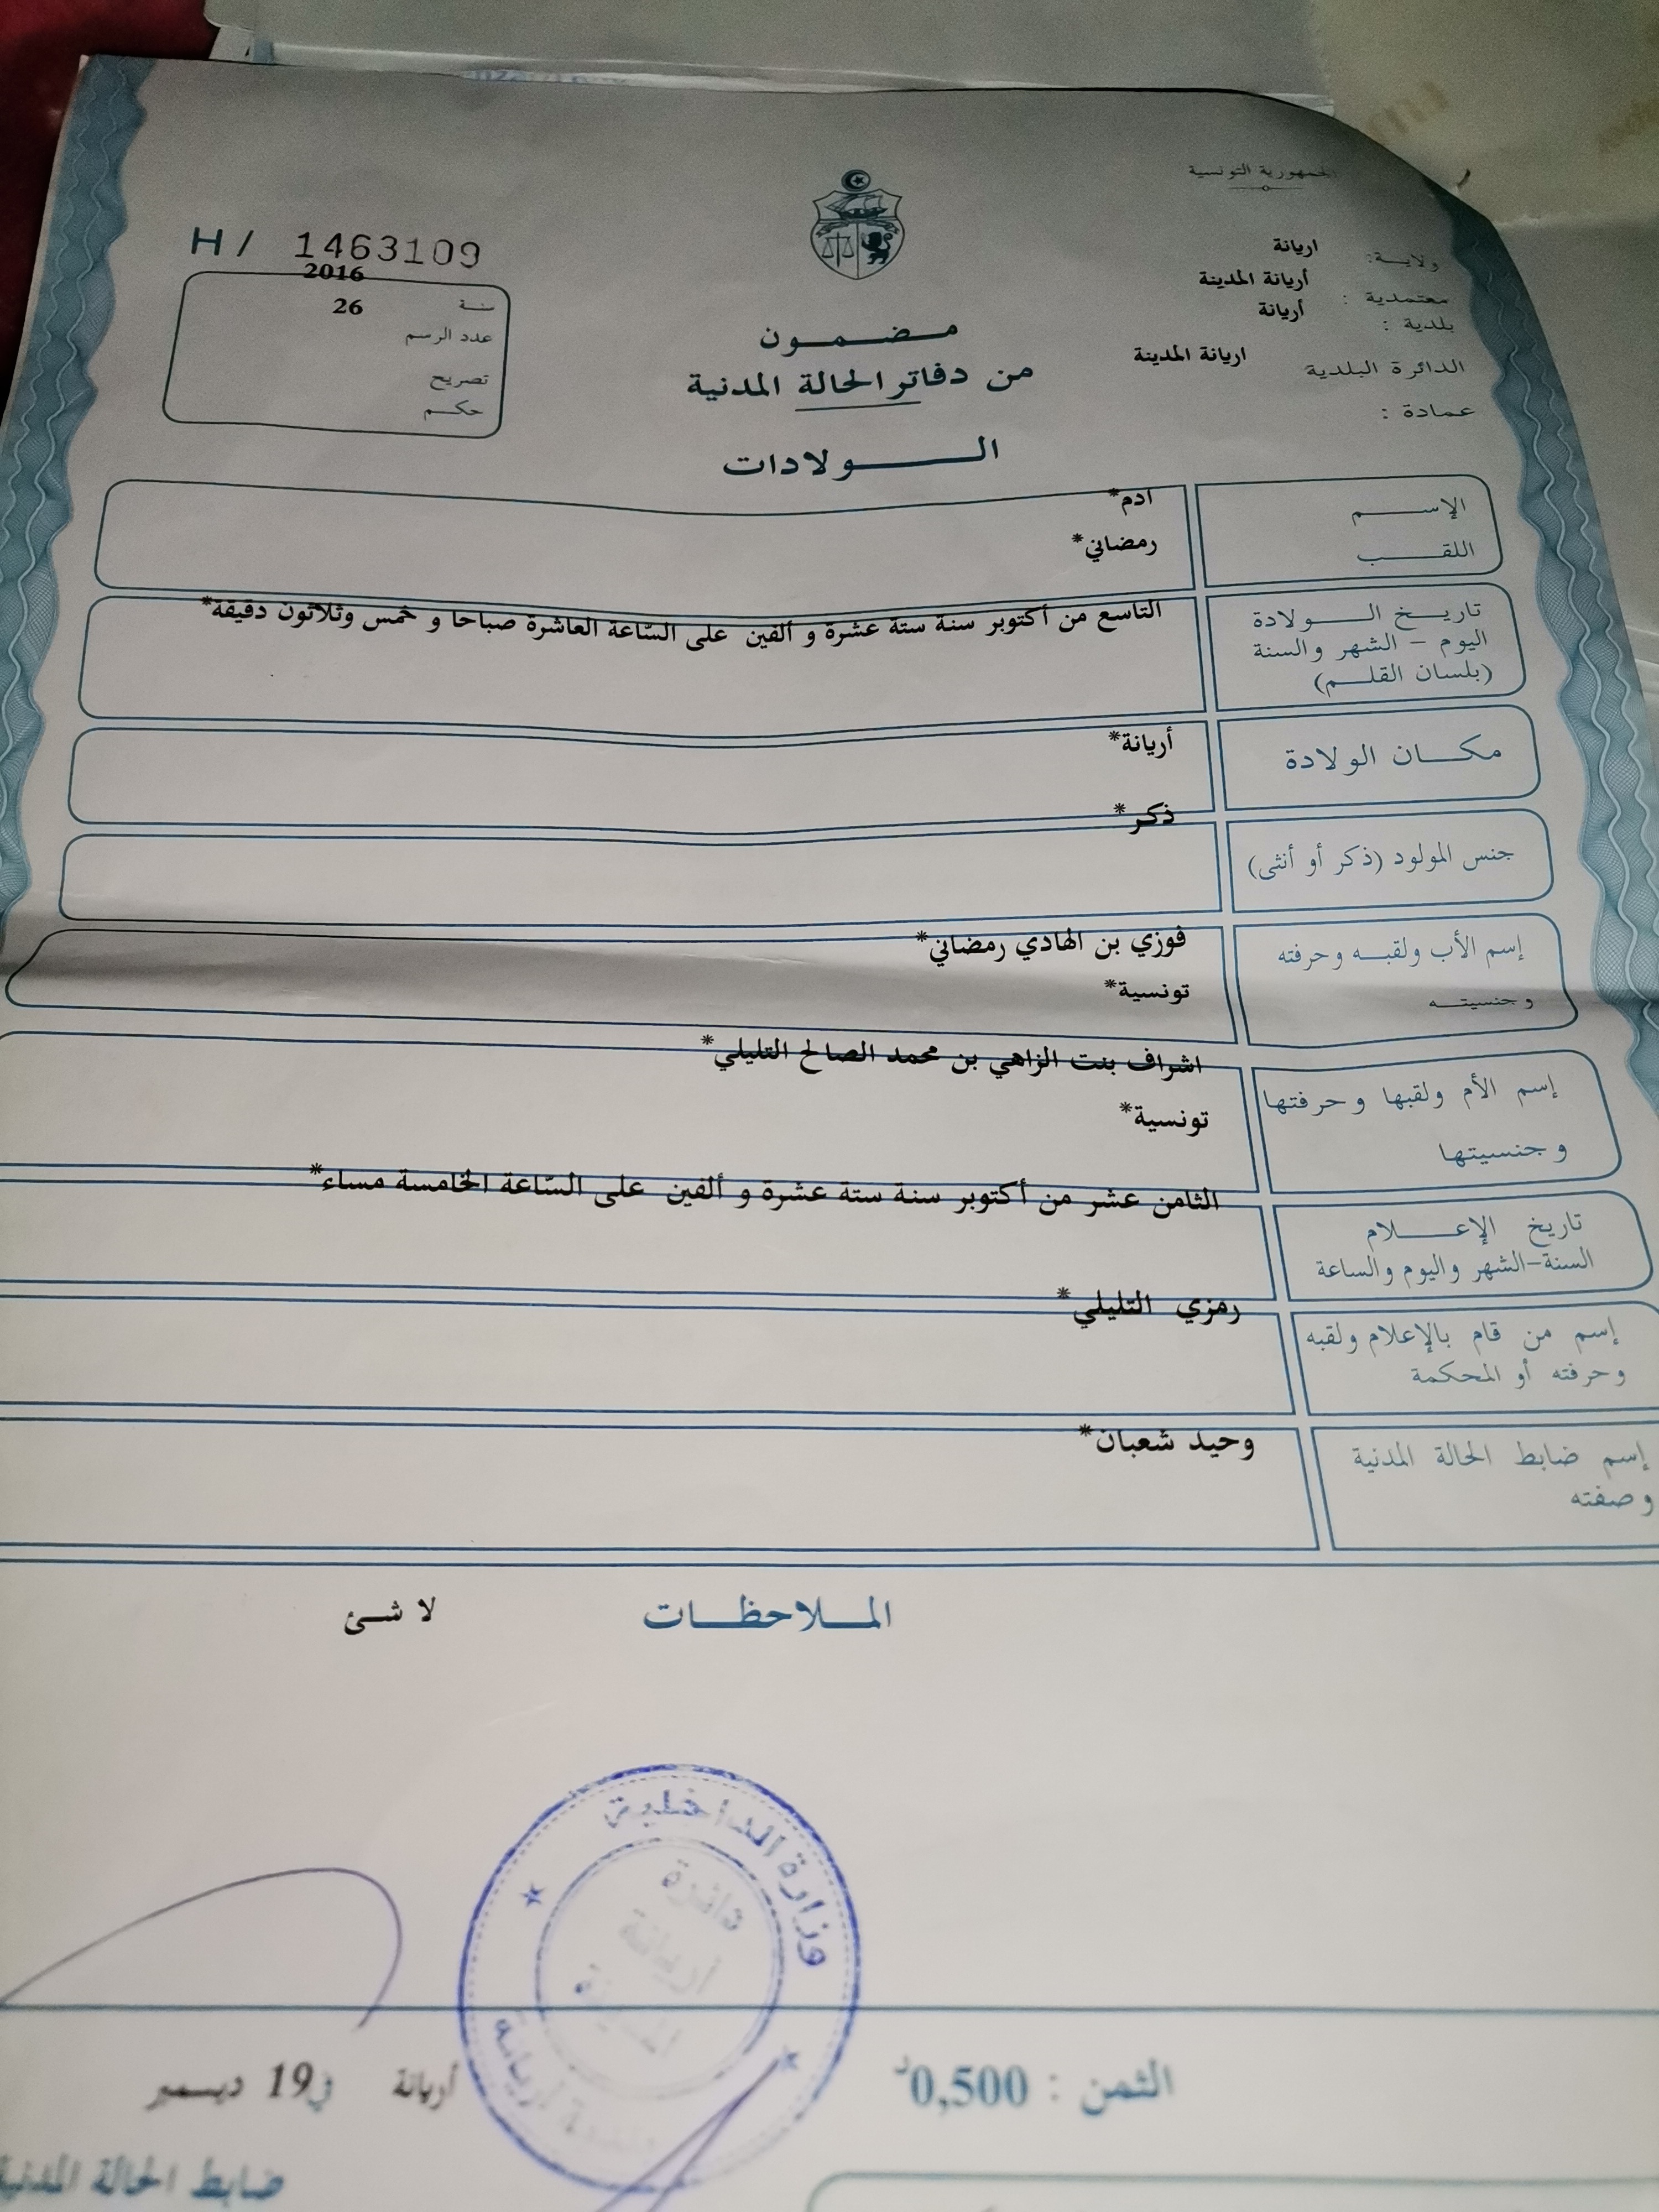 الجمهورية التونسية
ولاية: اريانة
معتمدية : أريانة المدينة
بلدية : أريانة
الدائرة البلدية اريانة المدينة
عمادة :
H / 1463109
سنة 2016
عدد الرسم 26
تصريح
حكم
مضمون
من دفاتر الحالة المدنية
الولادات
الإسم ادم*
اللقب رمضاني*
تاريخ الولادة
اليوم - الشهر والسنة
(بلسان القلم)
التاسع من أكتوبر سنة ستة عشرة و ألفين على السّاعة العاشرة صباحا و خمس وثلاثون دقيقة*
مكان الولادة أريانة*
جنس المولود (ذكر أو أنثى) ذكر*
إسم الأب ولقبه وحرفته فوزي بن الهادي رمضاني*
وجنسيته تونسية*
إسم الأم ولقبها وحرفتها اشراف بنت الزاهي بن محمد الصالح التليلي*
وجنسيتها تونسية*
تاريخ الإعلام
السنة-الشهر واليوم والساعة
الثامن عشر من أكتوبر سنة ستة عشرة و ألفين على السّاعة الخامسة مساء*
إسم من قام بالإعلام ولقبه
وحرفته أو المحكمة
رمزي التليلي*
إسم ضابط الحالة المدنية
وصفته
وحيد شعبان*
الملاحظات لا شئ
وزارة الداخلية
دائرة
أريانة
المدينة
الثمن : 0,500د
أريانة في 19 ديسمبر
ضابط الحالة المدنية